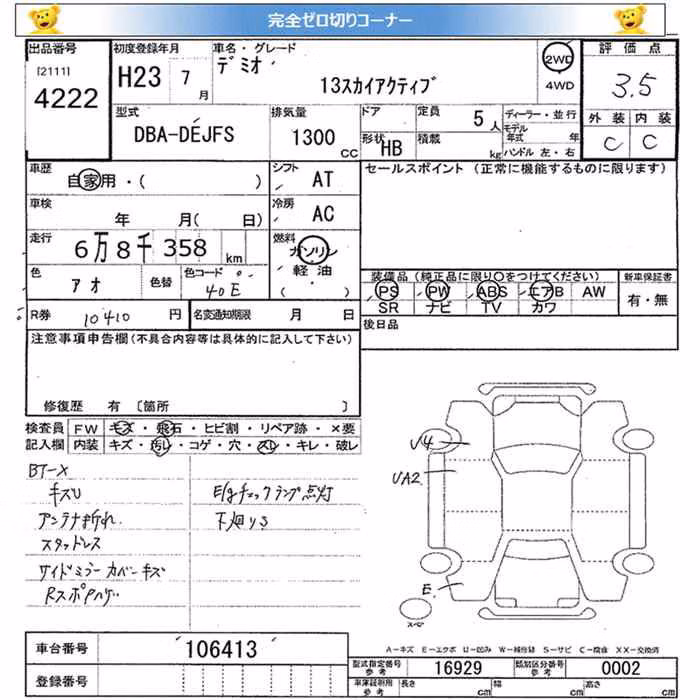 完全ゼロ切りコーナー
出品番号 初度登録年月 車名・グレード 評価点
[2111] 4222 H23 7月 デミオ 13スカイアクティブ 2WD 4WD 3.5
型式 排気量 ドア 定員 5人 ディーラー・並行 外装 内装
DBA-DEJFS 1300 CC 形状 HB 積載 kg モデル年式 年 C C
ハンドル 左・右
車歴 自家用・( ) シフト AT セールスポイント (正常に機能するものに限ります)
車検 年 月( 日) 冷房 AC
走行 6万8千358 km 燃料 ガソリン 軽油 ( )
色 アオ 色替 色コード 40E 装備品 (純正品に限り○をつけてください) 新車保証書
PS PW ABS エアB AW 有・無
SR ナビ TV カワ
R券 10410 円 名変通知期限 月 日 後日品
注意事項申告欄 (不具合内容等は具体的に記入して下さい)
修復歴 有 〔箇所 〕
検査員 FW キズ・飛石・ヒビ割・リペア跡・×要
記入欄 内装 キズ・汚れ・コゲ・穴・スレ・キレ・破レ
BT-X
キズU E/gチェックランプ点灯
アンテナ折れ 下廻りS
スタッドレス
サイドミラーカバーキズ
RスポPハゲ
U4
UA2
E
スペア
A-キズ E-エクボ U-凹み W-補修跡 S-サビ C-腐食 XX-交換済
車台番号 106413 型式指定番号 参考 16929 類別区分番号 参考 0002
登録番号 車庫証明用 参考 長さ cm 幅 cm 高さ cm